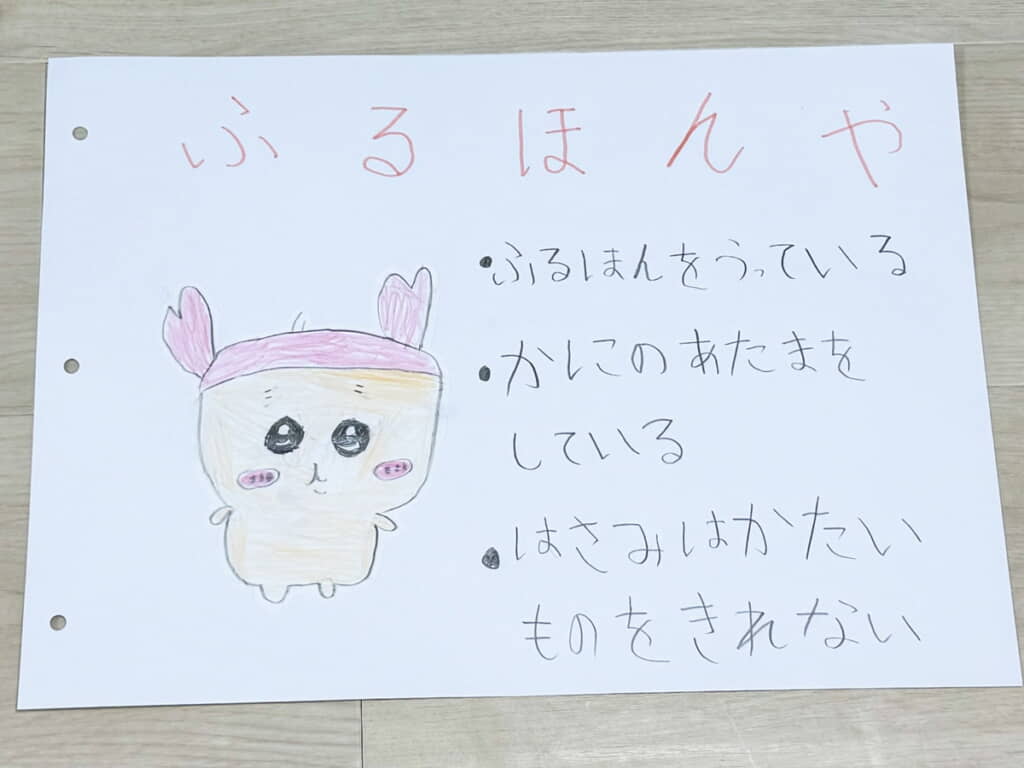 ふるほんや
•ふるほんをうっている
•かにのあたまを
している
•はさみはかたい
ものをきれない